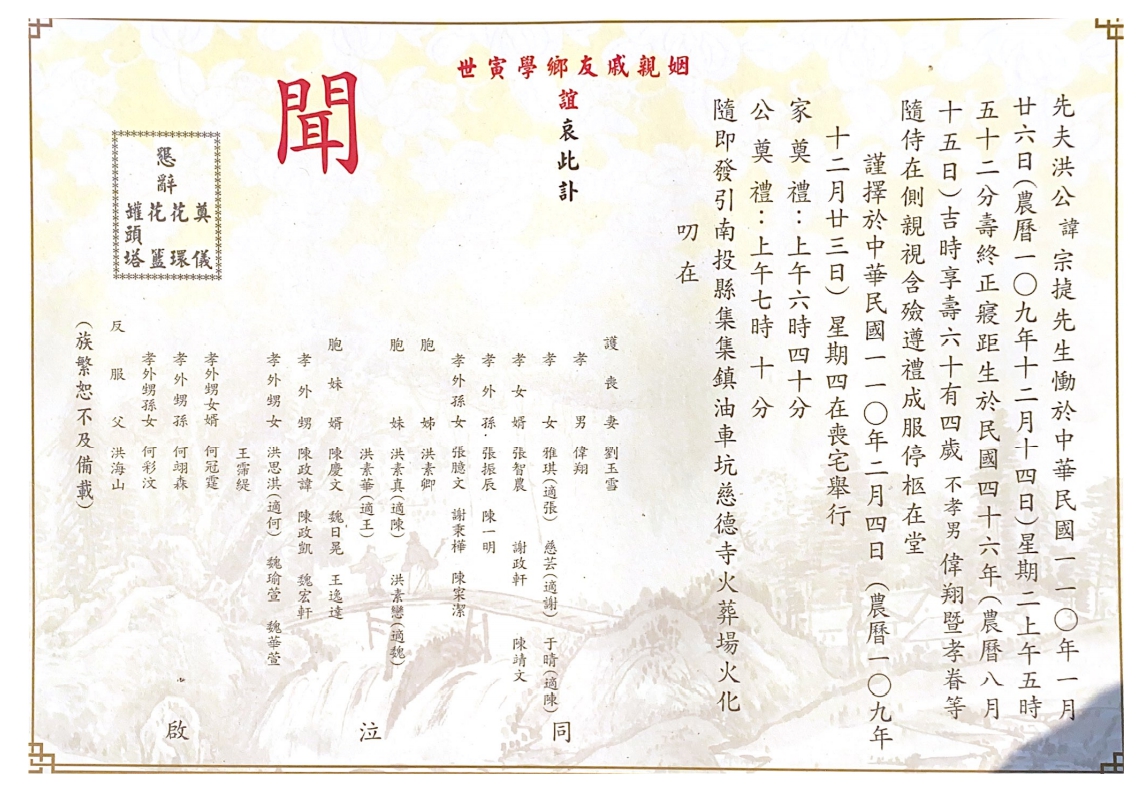 先夫洪公 諱 宗㨗先生慟於中華民國一一〇年一月
廿六日(農曆一〇九年十二月十四日)星期二上午五時
五十二分壽終正寢距生於民國四十六年(農曆八月
十五日)吉時享壽六十有四歲 不孝男 偉翔暨孝眷等
隨侍在側親視含殮遵禮成服停柩在堂
謹擇於中華民國一一〇年二月四日 (農曆一〇九年
十二月廿三日) 星期四在喪宅舉行
家奠禮:上午六時四十分
公奠禮:上午七時十分
隨即發引南投縣集集鎮油車坑慈德寺火葬場火化
叨在
姻親戚友鄉學寅世
誼哀此訃
聞
護喪妻 劉玉雪
孝男 偉翔
孝女 雅琪(適張) 慈芸(適謝) 于晴(適陳)
孝女婿 張智農 謝政軒 陳靖文
孝外孫 張振辰 陳一明
孝外孫女 張臆文 謝秉樺 陳寀潔
胞姊 洪素卿
胞妹 洪素真(適陳) 洪素戀(適魏)
洪素華(適王)
胞妹婿 陳慶文 魏日晃 王逸達
孝外甥 陳政諱 陳政凱 魏宏軒
孝外甥女 洪思淇(適何) 魏瑜萱 魏華萱
王霈緹
孝外甥女婿 何冠霆
孝外甥孫 何翊森
孝外甥孫女 何彩汶
反服父 洪海山
(族繁恕不及備載)
同泣啟
懇辭
奠儀
花環
花籃
罐頭塔